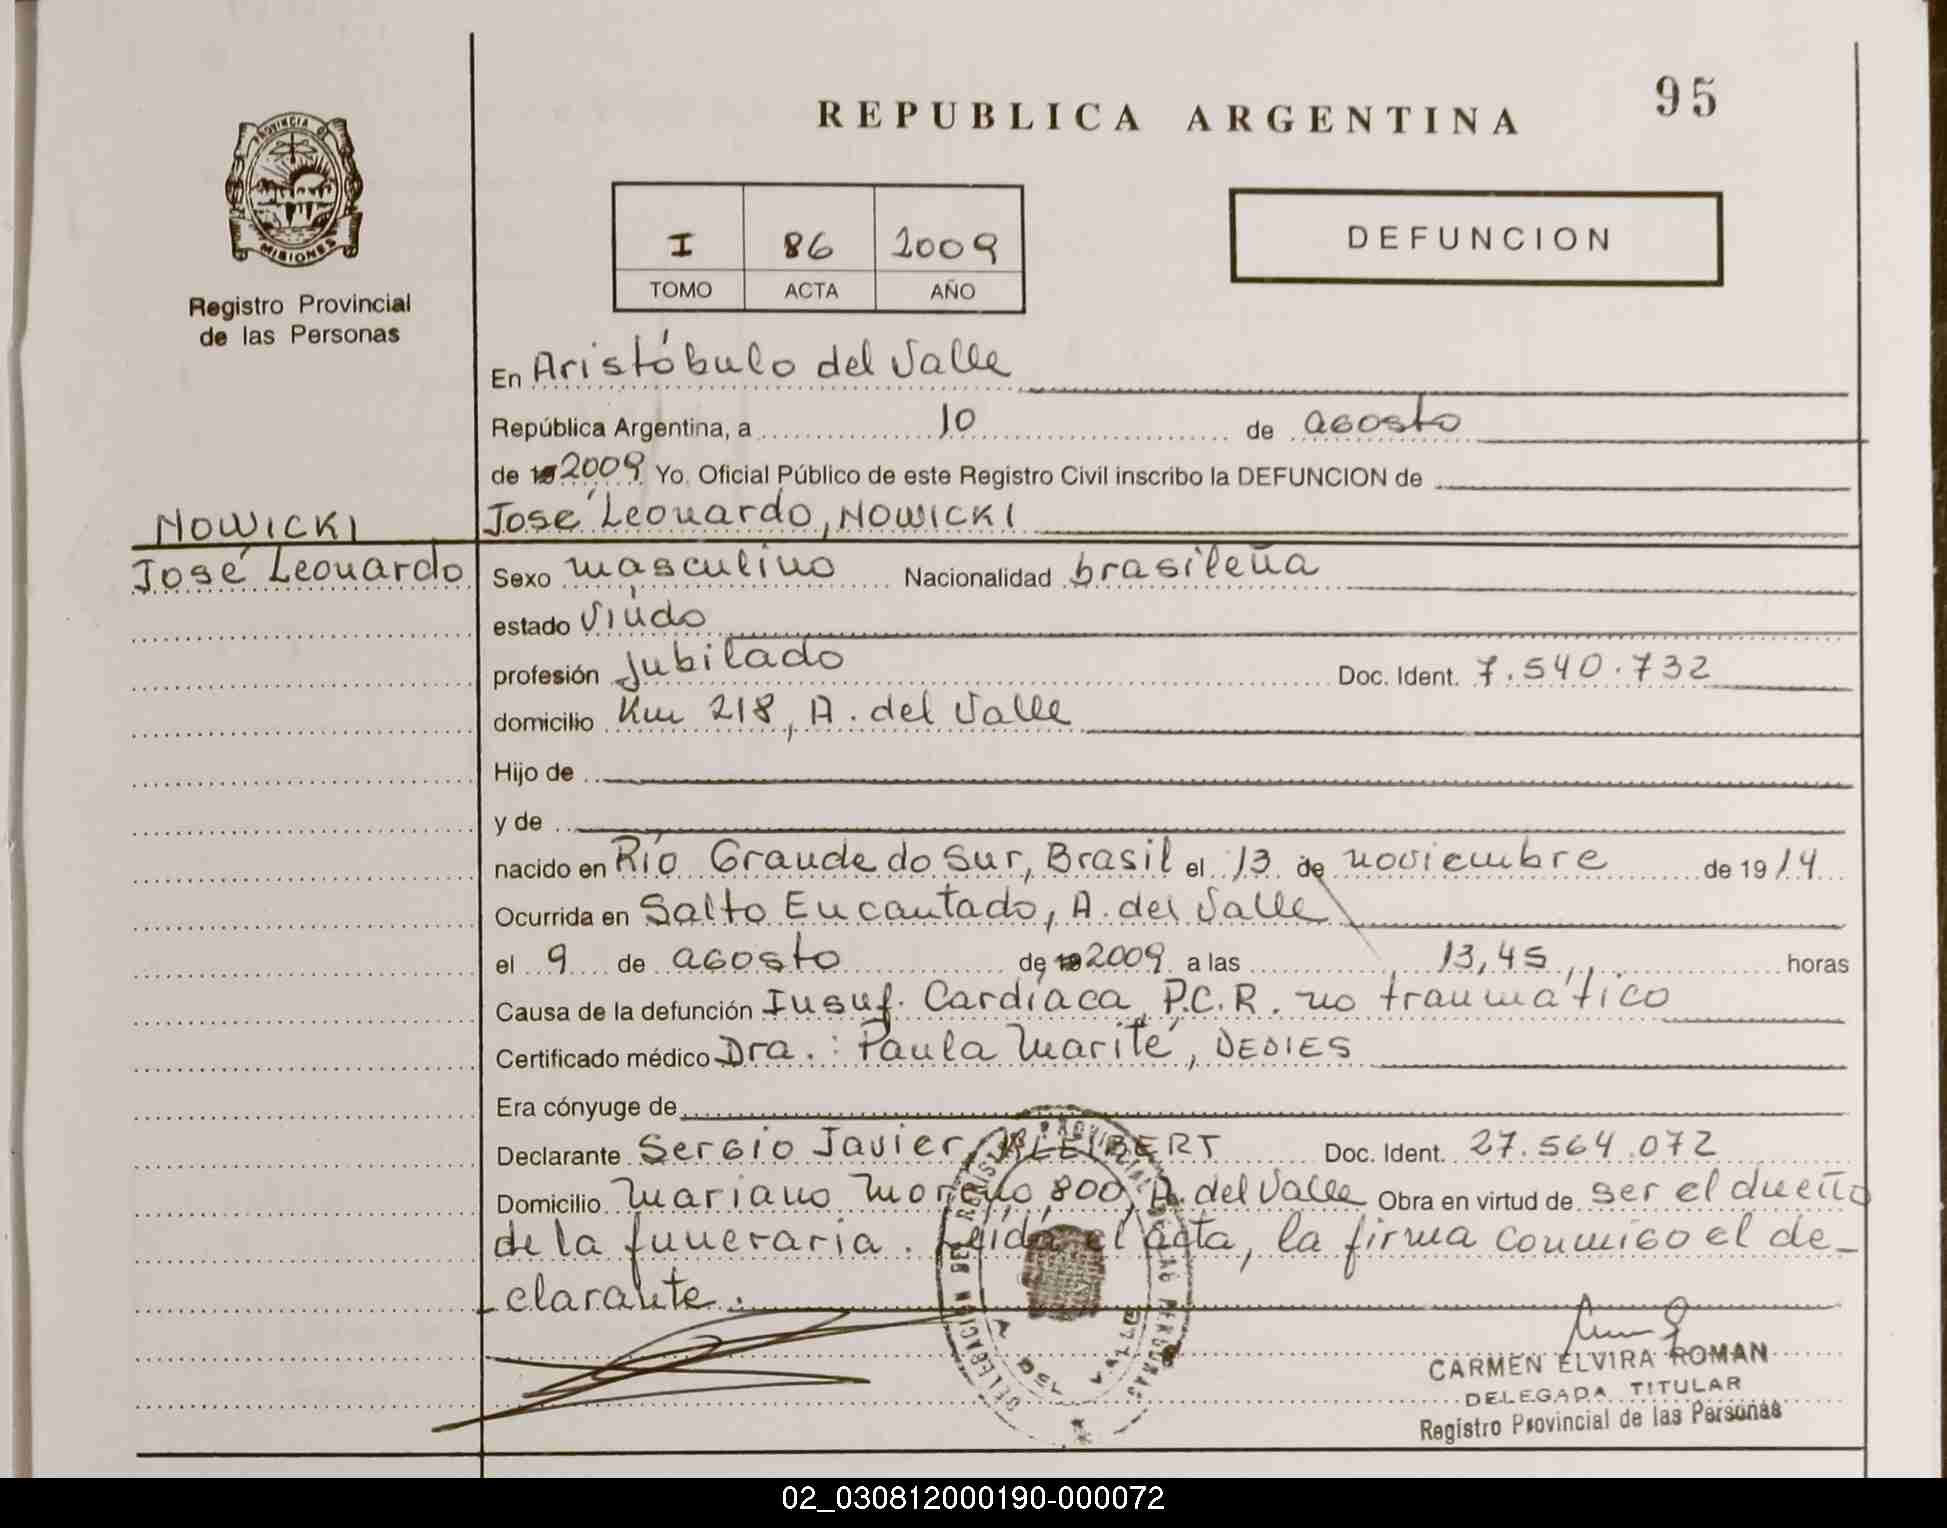 REPUBLICA ARGENTINA
95
PROVINCIA DE
MISIONES
Registro Provincial
de las Personas
I 86 2009
TOMO ACTA AÑO
DEFUNCION
En Aristóbulo del Valle
República Argentina, a 10 de agosto
de 19 2009 Yo, Oficial Público de este Registro Civil inscribo la DEFUNCION de
NOWICKI
José Leonardo
José Leonardo, NOWICKI
Sexo masculino Nacionalidad brasileña
estado viudo
profesión Jubilado Doc. Ident. 7.540.732
domicilio Km 218, A. del Valle
Hijo de
y de
nacido en Río Grande do Sur, Brasil el 13 de noviembre de 1914
Ocurrida en Salto Encantado, A. del Valle
el 9 de agosto de 19 2009 a las 13,45 horas
Causa de la defunción Insuf. Cardíaca, P.C.R. no traumático
Certificado médico Dra.: Paula Marité, DEDIES
Era cónyuge de
Declarante Sergio Javier Doc. Ident. 27.564.072
Domicilio Mariano Moreno, 800, A. del Valle Obra en virtud de ser el dueño
de la funeraria. Leída el acta, la firma conmigo el de-
clarante.
CARMEN ELVIRA ROMAN
DELEGADA TITULAR
Registro Provincial de las Personas
02_030812000190-000072